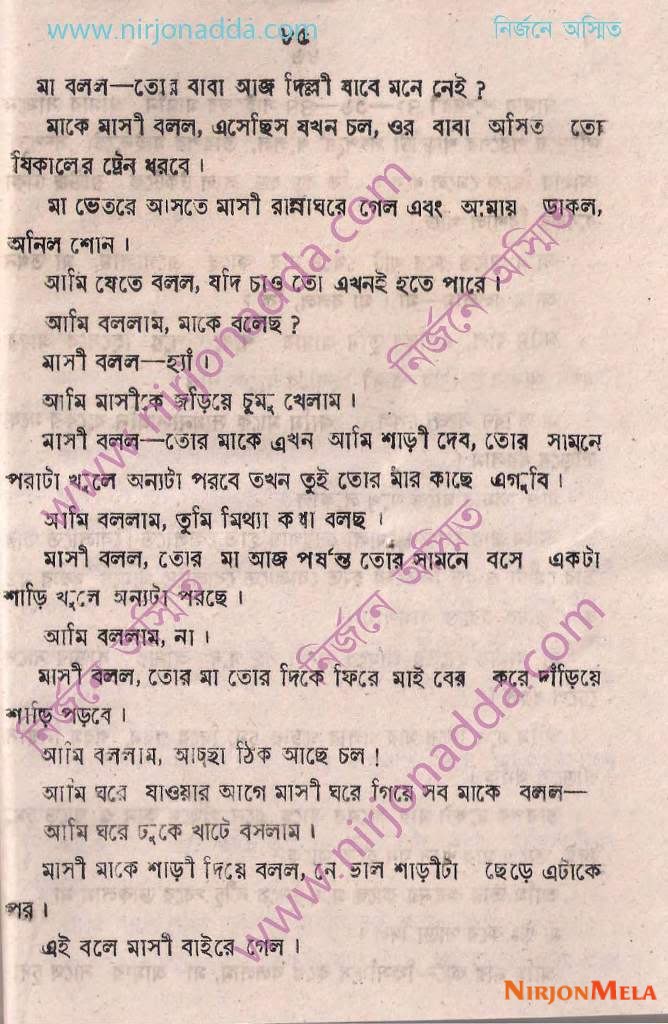 www.nirjonadda.com ৮৫ নির্জনে অস্মিত
মা বলল—তোর বাবা আজ দিল্লী যাবে মনে নেই ?
মাকে মাসী বলল, এসেছিস যখন চল, ওর বাবা অসিত তো
ষিকালের ট্রেন ধরবে ।
মা ভেতরে আসতে মাসী রান্নাঘরে গেল এবং আমায় ডাকল,
অনিল শোন ।
আমি যেতে বলল, যদি চাও তো এখনই হতে পারে ।
আমি বললাম, মাকে বলেছ ?
মাসী বলল—হ্যাঁ ।
আমি মাসীকে জড়িয়ে চুমু খেলাম ।
মাসী বলল—তোর মাকে এখন আমি শাড়ী দেব, তোর সামনে
পরাটা খুলে অন্যটা পরবে তখন তুই তোর মার কাছে এগুবি ।
আমি বললাম, তুমি মিথ্যা কথা বলছ ।
মাসী বলল, তোর মা আজ পর্যন্ত তোর সামনে বসে একটা
শাড়ি খুলে অন্যটা পরছে ।
আমি বললাম, না ।
মাসী বলল, তোর মা তোর দিকে ফিরে মাই বের করে দাঁড়িয়ে
শাড়ি পড়বে ।
আমি বললাম, আচ্ছা ঠিক আছে চল !
আমি ঘরে যাওয়ার আগে মাসী ঘরে গিয়ে সব মাকে বলল—
আমি ঘরে ঢুকে খাটে বসলাম ।
মাসী মাকে শাড়ী দিয়ে বলল, নে ভাল শাড়ীটা ছেড়ে এটাকে
পর ।
এই বলে মাসী বাইরে গেল ।
www.nirjonadda.com
নির্জনে অস্মিত
নির্জনে অস্মিত
নির্জনে অস্মিত
www.nirjonadda.com
NIRJONMELA